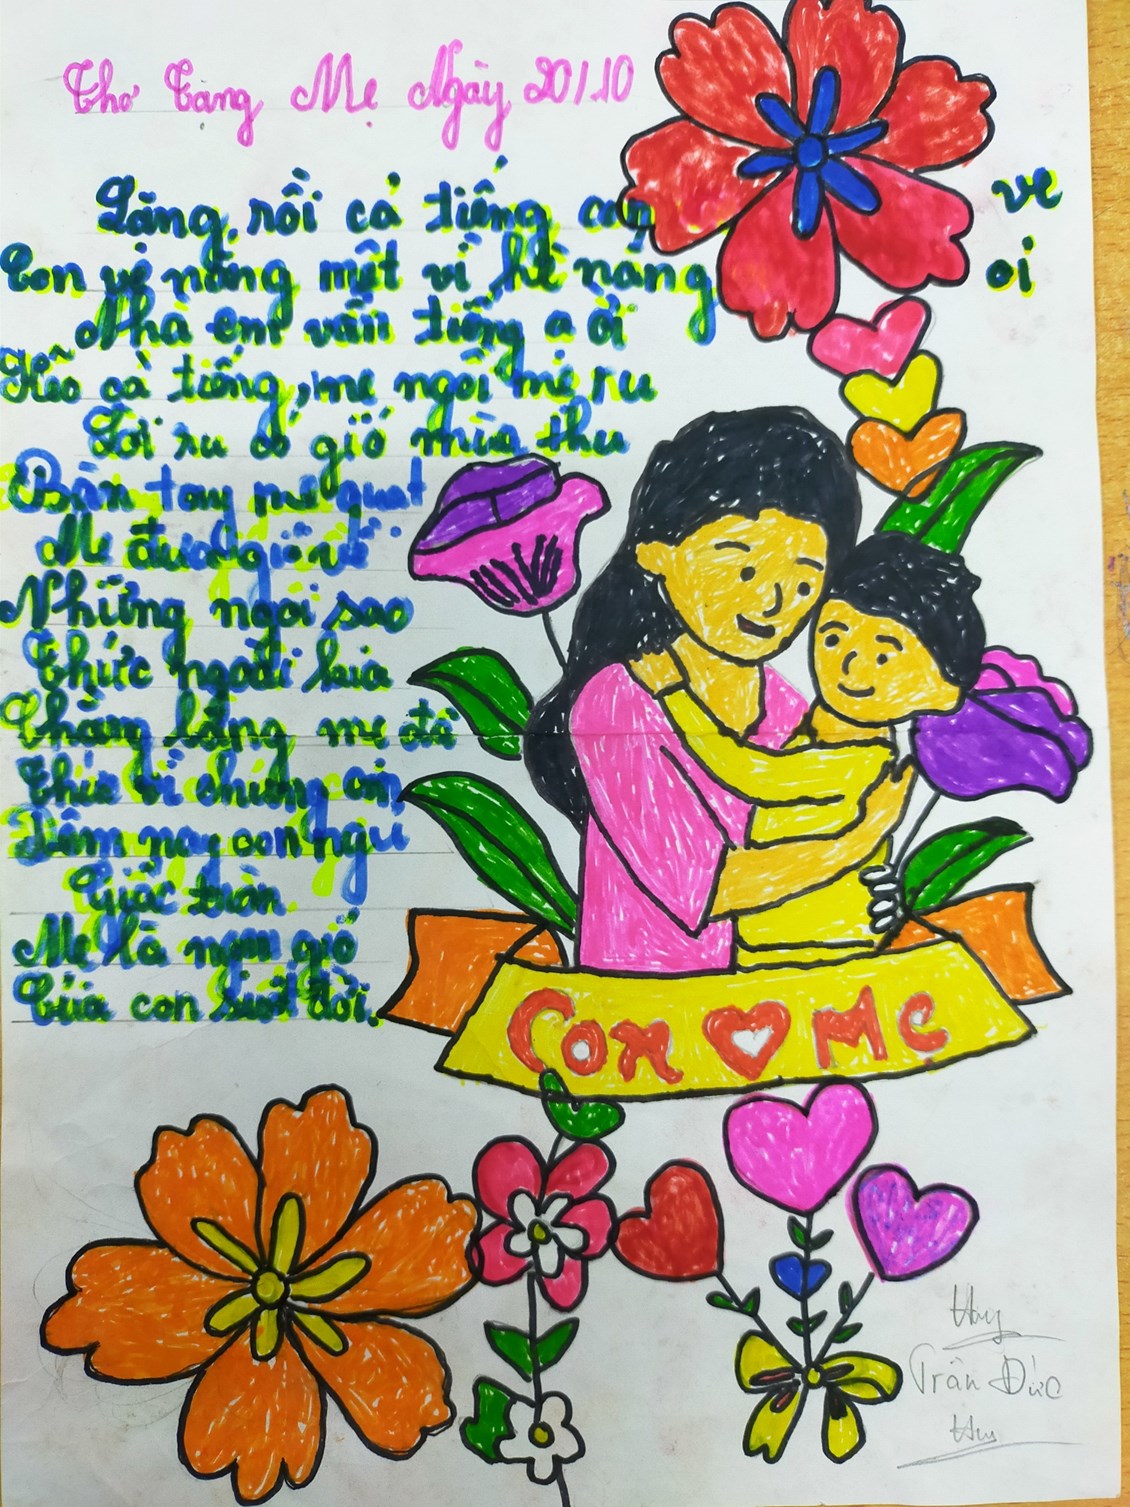 Thơ Tặng Mẹ Ngày 20/10
Lặng rồi cả tiếng con ve
Con ve nắng mệt vì hè nắng oi
Nhà em vẫn tiếng ạ ời
Kẽo cà tiếng, mẹ ngồi mẹ ru
Lời ru có gió mùa thu
Bàn tay mẹ quạt
Mẹ đưa gió về
Những ngôi sao
Thức ngoài kia
Chẳng bằng mẹ đã
thức vì chúng con
Đêm nay con ngủ
Giấc tròn
Mẹ là ngọn gió
Của con suốt đời.
Con Mẹ
Huy
Trần Đức
Huy